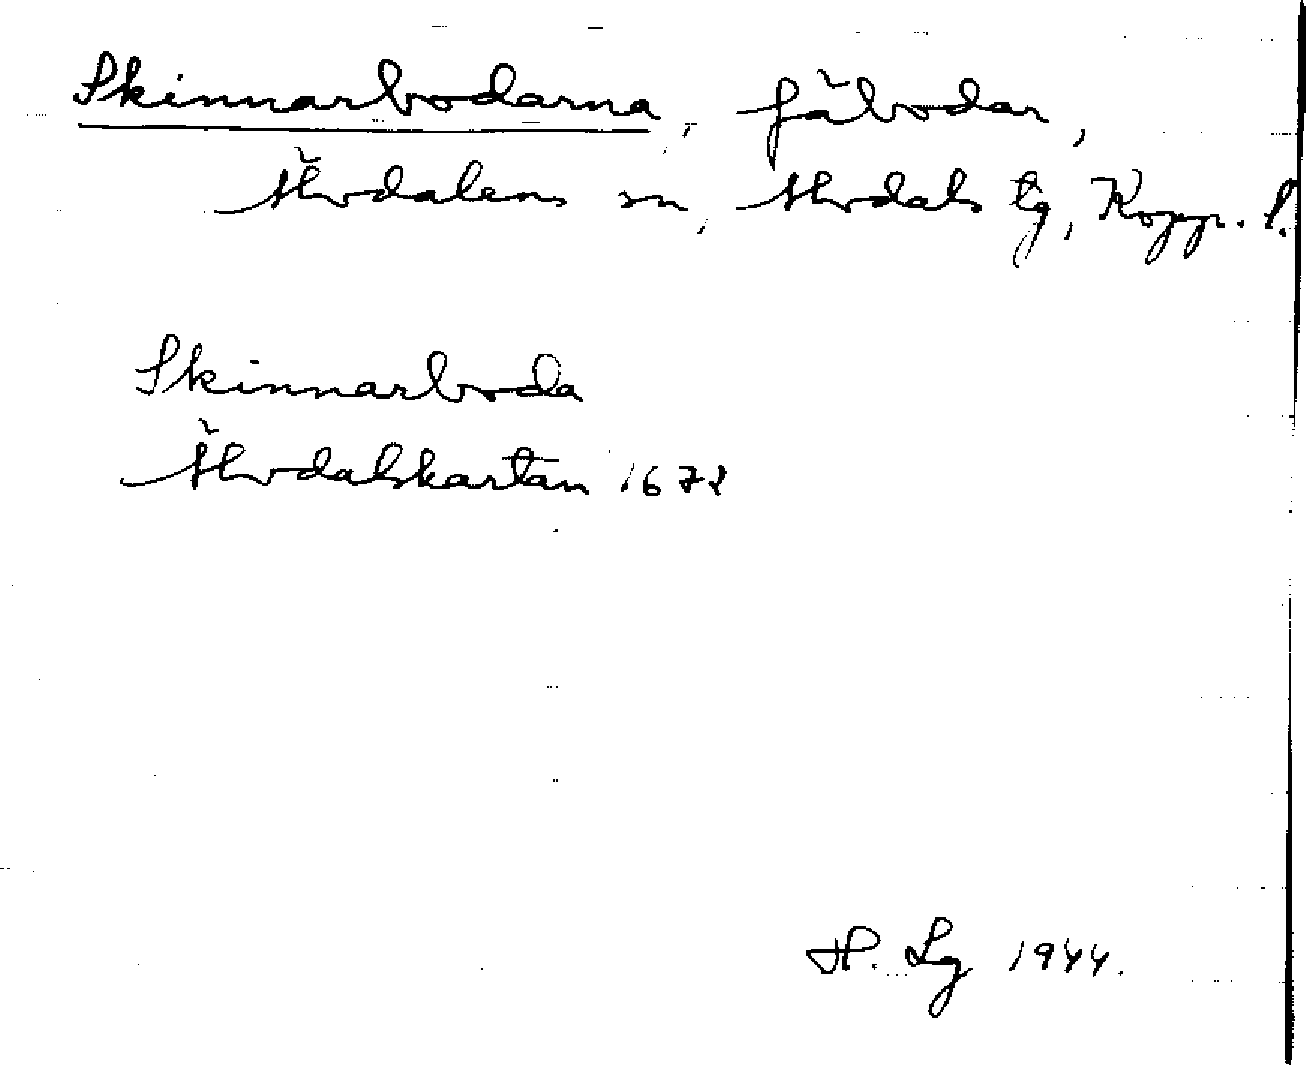 Skinnarbodarna, fäbodar,
Älvdalens sn, Älvdals tg, Kopp. l.
Skinnarboda
Älvdalskartan 1672
H. Lg 1944.